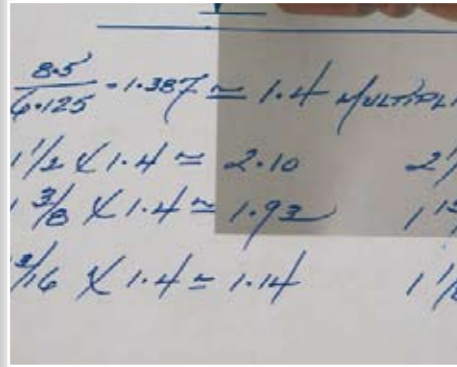 8.5/6.125 = 1.387 ≃ 1.4 MULTIPLI
1 1/2 X 1.4 ≃ 2.10 2 1/
1 3/8 X 1.4 ≃ 1.93 1 15
3/16 X 1.4 ≃ 1.14 1 1/